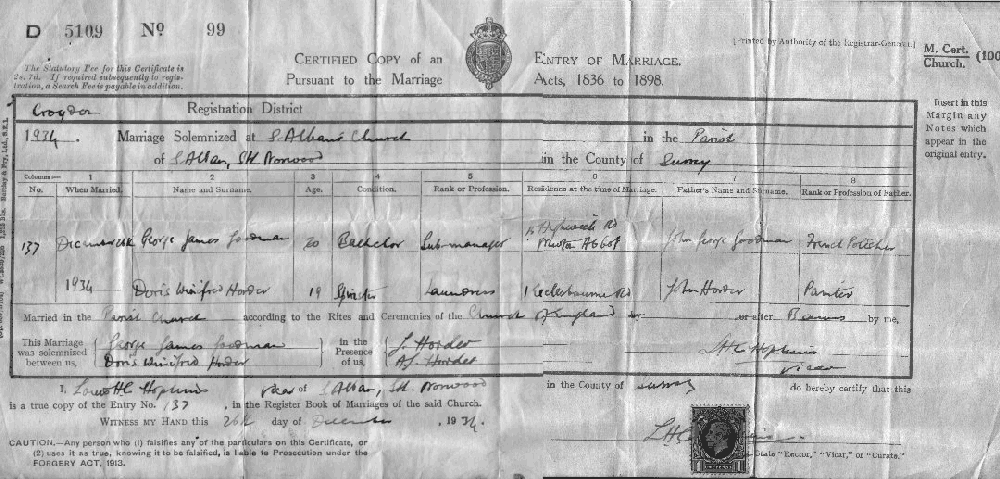 D 5109 No 99
[Printed by Authority of the Registrar-General.]
M. Cert.
Church. (100
The Statutory Fee for this Certificate is
2s. 7d. If required subsequently to regis-
tration, a Search Fee is payable in addition.
CERTIFIED COPY of an ENTRY OF MARRIAGE.
Pursuant to the Marriage Acts, 1836 to 1898.
Insert in this
Margin any
Notes which
appear in the
original entry.
Croydon Registration District
1934. Marriage Solemnized at S. Alban's Church in the Parish
of S. Alban, Sth Norwood in the County of Surrey
Columns:— 1 2 3 4 5 6 7 8
No. When Married. Name and Surname. Age. Condition. Rank or Profession. Residence at the time of Marriage. Father's Name and Surname. Rank or Profession of Father.
137 December 26 George James Goodman 20 Bachelor Sub-manager Rd Merton Abbey John George Goodman French Polisher
1934 Doris Winifred Horder 19 Spinster Laundress 1 Ecclesbourne Rd John Horder Painter
Married in the Parish Church according to the Rites and Ceremonies of the Church of England or after Banns by me,
This Marriage was solemnized between us, George James Goodman Doris Winifred Horder in the Presence of us, J. Horder A.J. Horder L H C Hopkins Vicar
I, Hopkins Vicar of S. Alban, Sth Norwood in the County of Surrey do hereby certify that this
is a true copy of the Entry No. 137, in the Register Book of Marriages of the said Church.
WITNESS MY HAND this 26th day of December, 1934.
CAUTION.—Any person who (1) falsifies any of the particulars on this Certificate, or
(2) uses it as true, knowing it to be falsified, is liable to Prosecution under the
FORGERY ACT, 1913.
State "Rector," "Vicar," or "Curate."